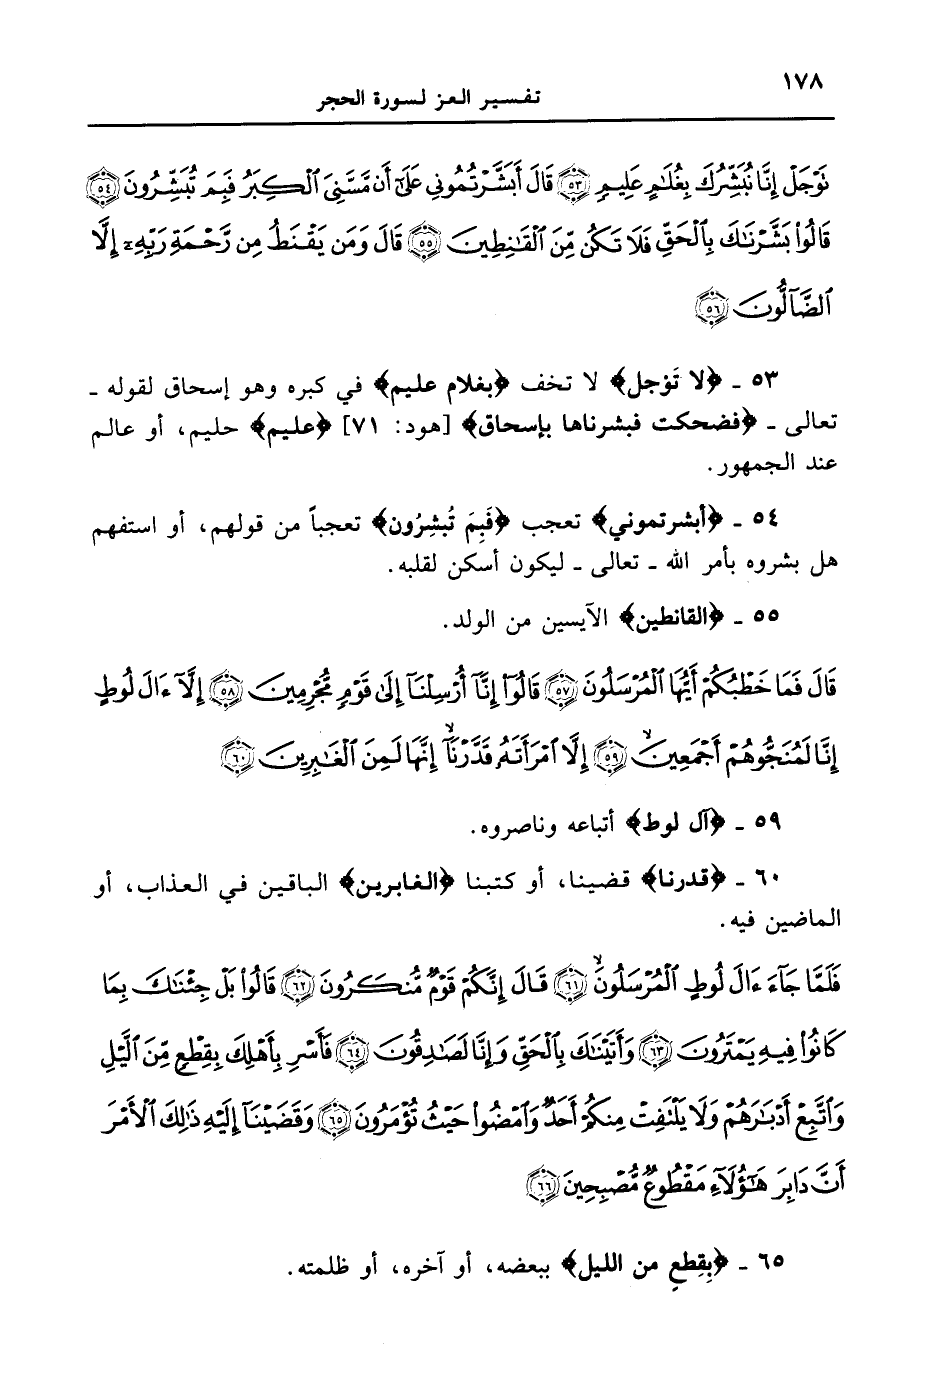 ١٧٨
تفسير العز لسورة الحجر
نَوْجَلْ إِنَّا نُبَشِّرُكَ بِغُلَٰمٍ عَلِيمٍ ﴿٥٣﴾ قَالَ أَبَشَّرْتُمُونِي عَلَىٰٓ أَن مَّسَّنِيَ ٱلْكِبَرُ فَبِمَ تُبَشِّرُونَ ﴿٥٤﴾
قَالُوا۟ بَشَّرْنَٰكَ بِٱلْحَقِّ فَلَا تَكُن مِّنَ ٱلْقَٰنِطِينَ ﴿٥٥﴾ قَالَ وَمَن يَقْنَطُ مِن رَّحْمَةِ رَبِّهِۦٓ إِلَّا
ٱلضَّآلُّونَ ﴿٥٦﴾
٥٣ ـ ﴿لا تَوْجل﴾ لا تخف ﴿بغلام عليم﴾ في كبره وهو إسحاق لقوله ـ
تعالى ـ ﴿فضحكت فبشرناها بإسحاق﴾ [هود: ٧١] ﴿عليم﴾ حليم، أو عالم
عند الجمهور.
٥٤ ـ ﴿أبشرتموني﴾ تعجب ﴿فَبِمَ تُبشِرُون﴾ تعجباً من قولهم، أو استفهم
هل بشروه بأمر الله ـ تعالى ـ ليكون أسكن لقلبه.
٥٥ ـ ﴿القانطين﴾ الآيسين من الولد.
قَالَ فَمَا خَطْبُكُمْ أَيُّهَا ٱلْمُرْسَلُونَ ﴿٥٧﴾ قَالُوٓا۟ إِنَّآ أُرْسِلْنَآ إِلَىٰ قَوْمٍ مُّجْرِمِينَ ﴿٥٨﴾ إِلَّآ ءَالَ لُوطٍ
إِنَّا لَمُنَجُّوهُمْ أَجْمَعِينَ ﴿٥٩﴾ إِلَّا ٱمْرَأَتَهُۥ قَدَّرْنَآ إِنَّهَا لَمِنَ ٱلْغَٰبِرِينَ ﴿٦٠﴾
٥٩ ـ ﴿آل لوط﴾ أتباعه وناصروه.
٦٠ ـ ﴿قدرنا﴾ قضينا، أو كتبنا ﴿الغابرين﴾ الباقين في العذاب، أو
الماضين فيه.
فَلَمَّا جَآءَ ءَالَ لُوطٍ ٱلْمُرْسَلُونَ ﴿٦١﴾ قَالَ إِنَّكُمْ قَوْمٌ مُّنكَرُونَ ﴿٦٢﴾ قَالُوا۟ بَلْ جِئْنَٰكَ بِمَا
كَانُوا۟ فِيهِ يَمْتَرُونَ ﴿٦٣﴾ وَأَتَيْنَٰكَ بِٱلْحَقِّ وَإِنَّا لَصَٰدِقُونَ ﴿٦٤﴾ فَأَسْرِ بِأَهْلِكَ بِقِطْعٍ مِّنَ ٱلَّيْلِ
وَٱتَّبِعْ أَدْبَٰرَهُمْ وَلَا يَلْتَفِتْ مِنكُمْ أَحَدٌ وَٱمْضُوا۟ حَيْثُ تُؤْمَرُونَ ﴿٦٥﴾ وَقَضَيْنَآ إِلَيْهِ ذَٰلِكَ ٱلْأَمْرَ
أَنَّ دَابِرَ هَٰٓؤُلَآءِ مَقْطُوعٌ مُّصْبِحِينَ ﴿٦٦﴾
٦٥ ـ ﴿بِقِطعٍ من الليل﴾ ببعضه، أو آخره، أو ظلمته.